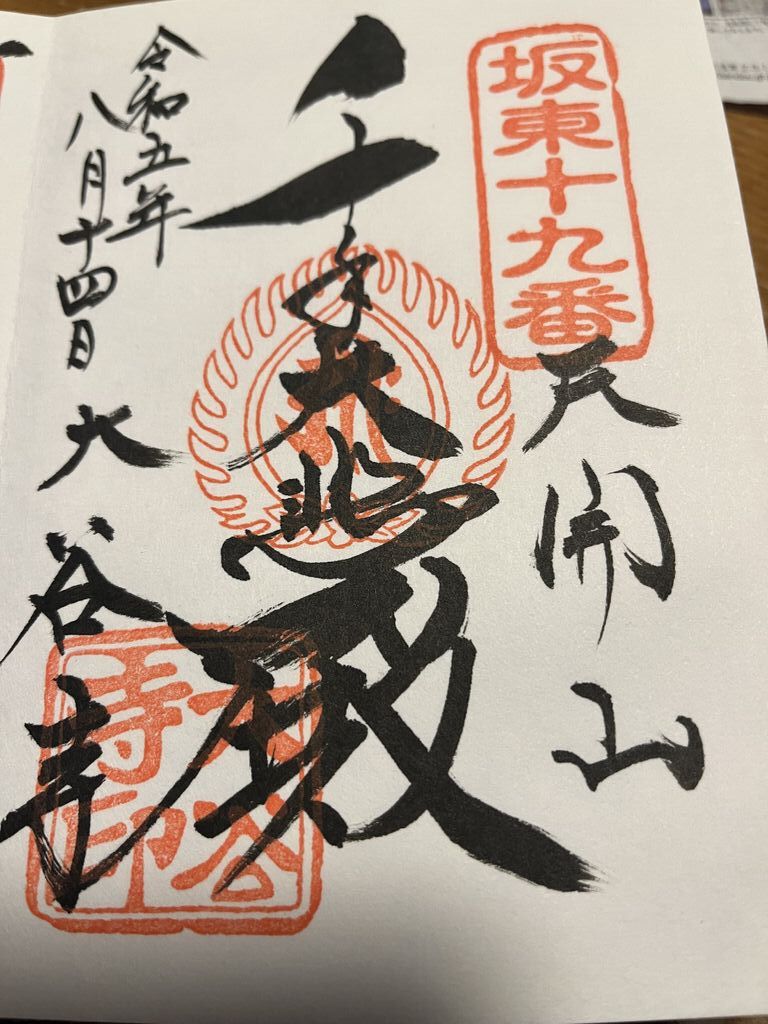 坂東十九番
天開山
千手大悲殿
令和五年
八月十四日
大谷寺
大谷
寺印